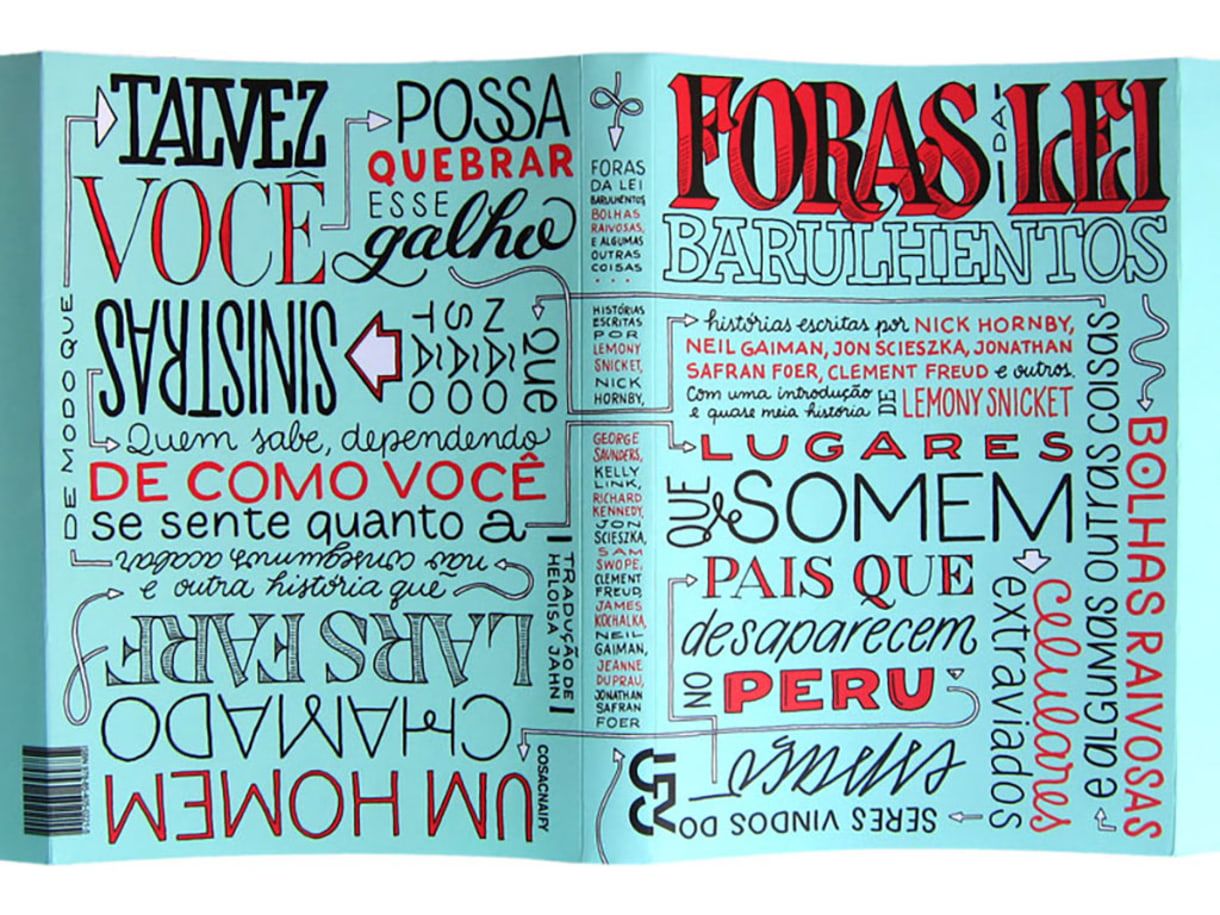 TALVEZ
VOCÊ
POSSA
QUEBRAR
ESSE galho
QUE
NÃO
SÃO
TÃO
SINISTRAS
DE MODO QUE
Quem sabe, dependendo
DE COMO VOCÊ
se sente quanto a
e outra história que
não conseguimos acabar
LARS FARF
CHAMADO
UM HOMEM
TRADUÇÃO DE
HELOISA JAHN
COSACNAIFY
FORAS
DA LEI
BARULHENTOS,
BOLHAS
RAIVOSAS,
E ALGUMAS
OUTRAS
COISAS
...
HISTÓRIAS
ESCRITAS
POR
LEMONY
SNICKET,
NICK
HORNBY,
GEORGE
SAUNDERS,
KELLY
LINK,
RICHARD
KENNEDY,
JON
SCIESZKA,
SAM
SWOPE,
CLEMENT
FREUD,
JAMES
KOCHALKA,
NEIL
GAIMAN,
JEANNE
DUPRAU,
JONATHAN
SAFRAN
FOER
FORAS DA LEI
BARULHENTOS
histórias escritas por NICK HORNBY,
NEIL GAIMAN, JON SCIESZKA, JONATHAN
SAFRAN FOER, CLEMENT FREUD e outros.
Com uma introdução
e quase meia história DE LEMONY SNICKET
LUGARES
QUE se SOMEM
PAIS QUE
desaparecem
NO PERU
Celulares
extraviados
SERES VINDOS DO
BOLHAS RAIVOSAS
e ALGUMAS OUTRAS COISAS